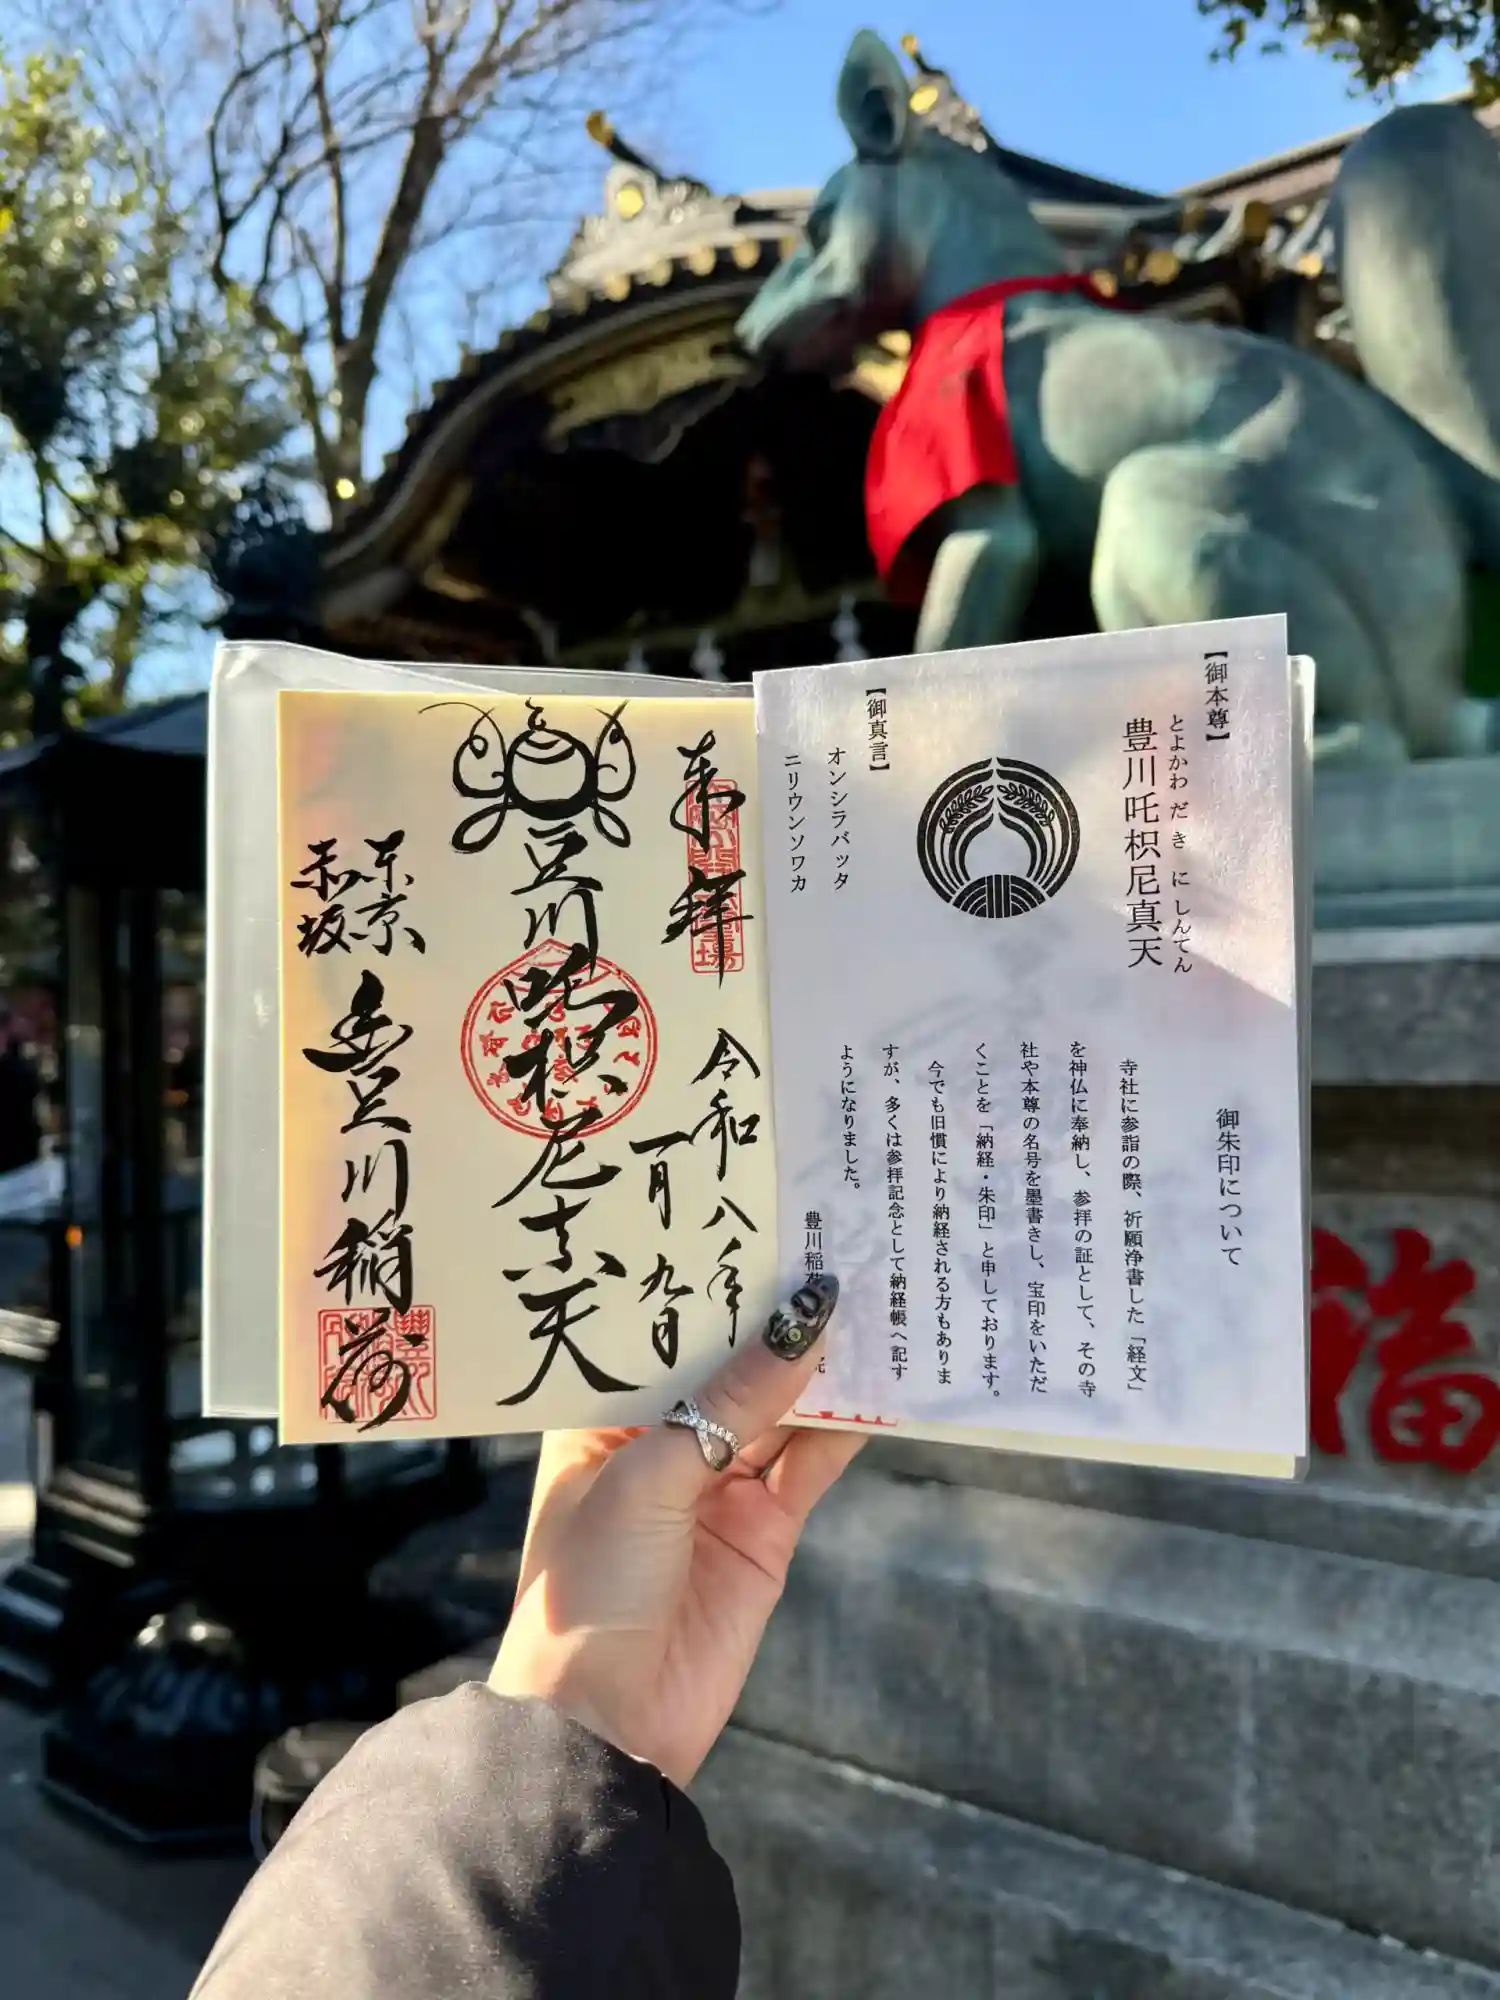 【御本尊】
とよかわ だ き に しんてん
豊川吒枳尼真天
【御真言】
オンシラバッタ
ニリウンソワカ
御朱印について
寺社に参詣の際、祈願浄書した「経文」
を神仏に奉納し、参拝の証として、その寺
社や本尊の名号を墨書きし、宝印をいただ
くことを「納経・朱印」と申しております。
今でも旧慣により納経される方もありま
すが、多くは参拝記念として納経帳へ記す
ようになりました。
豊川稲荷
奉拝
令和八年
一月九日
豊川吒枳尼真天
東京
赤坂
豊川稲荷
福